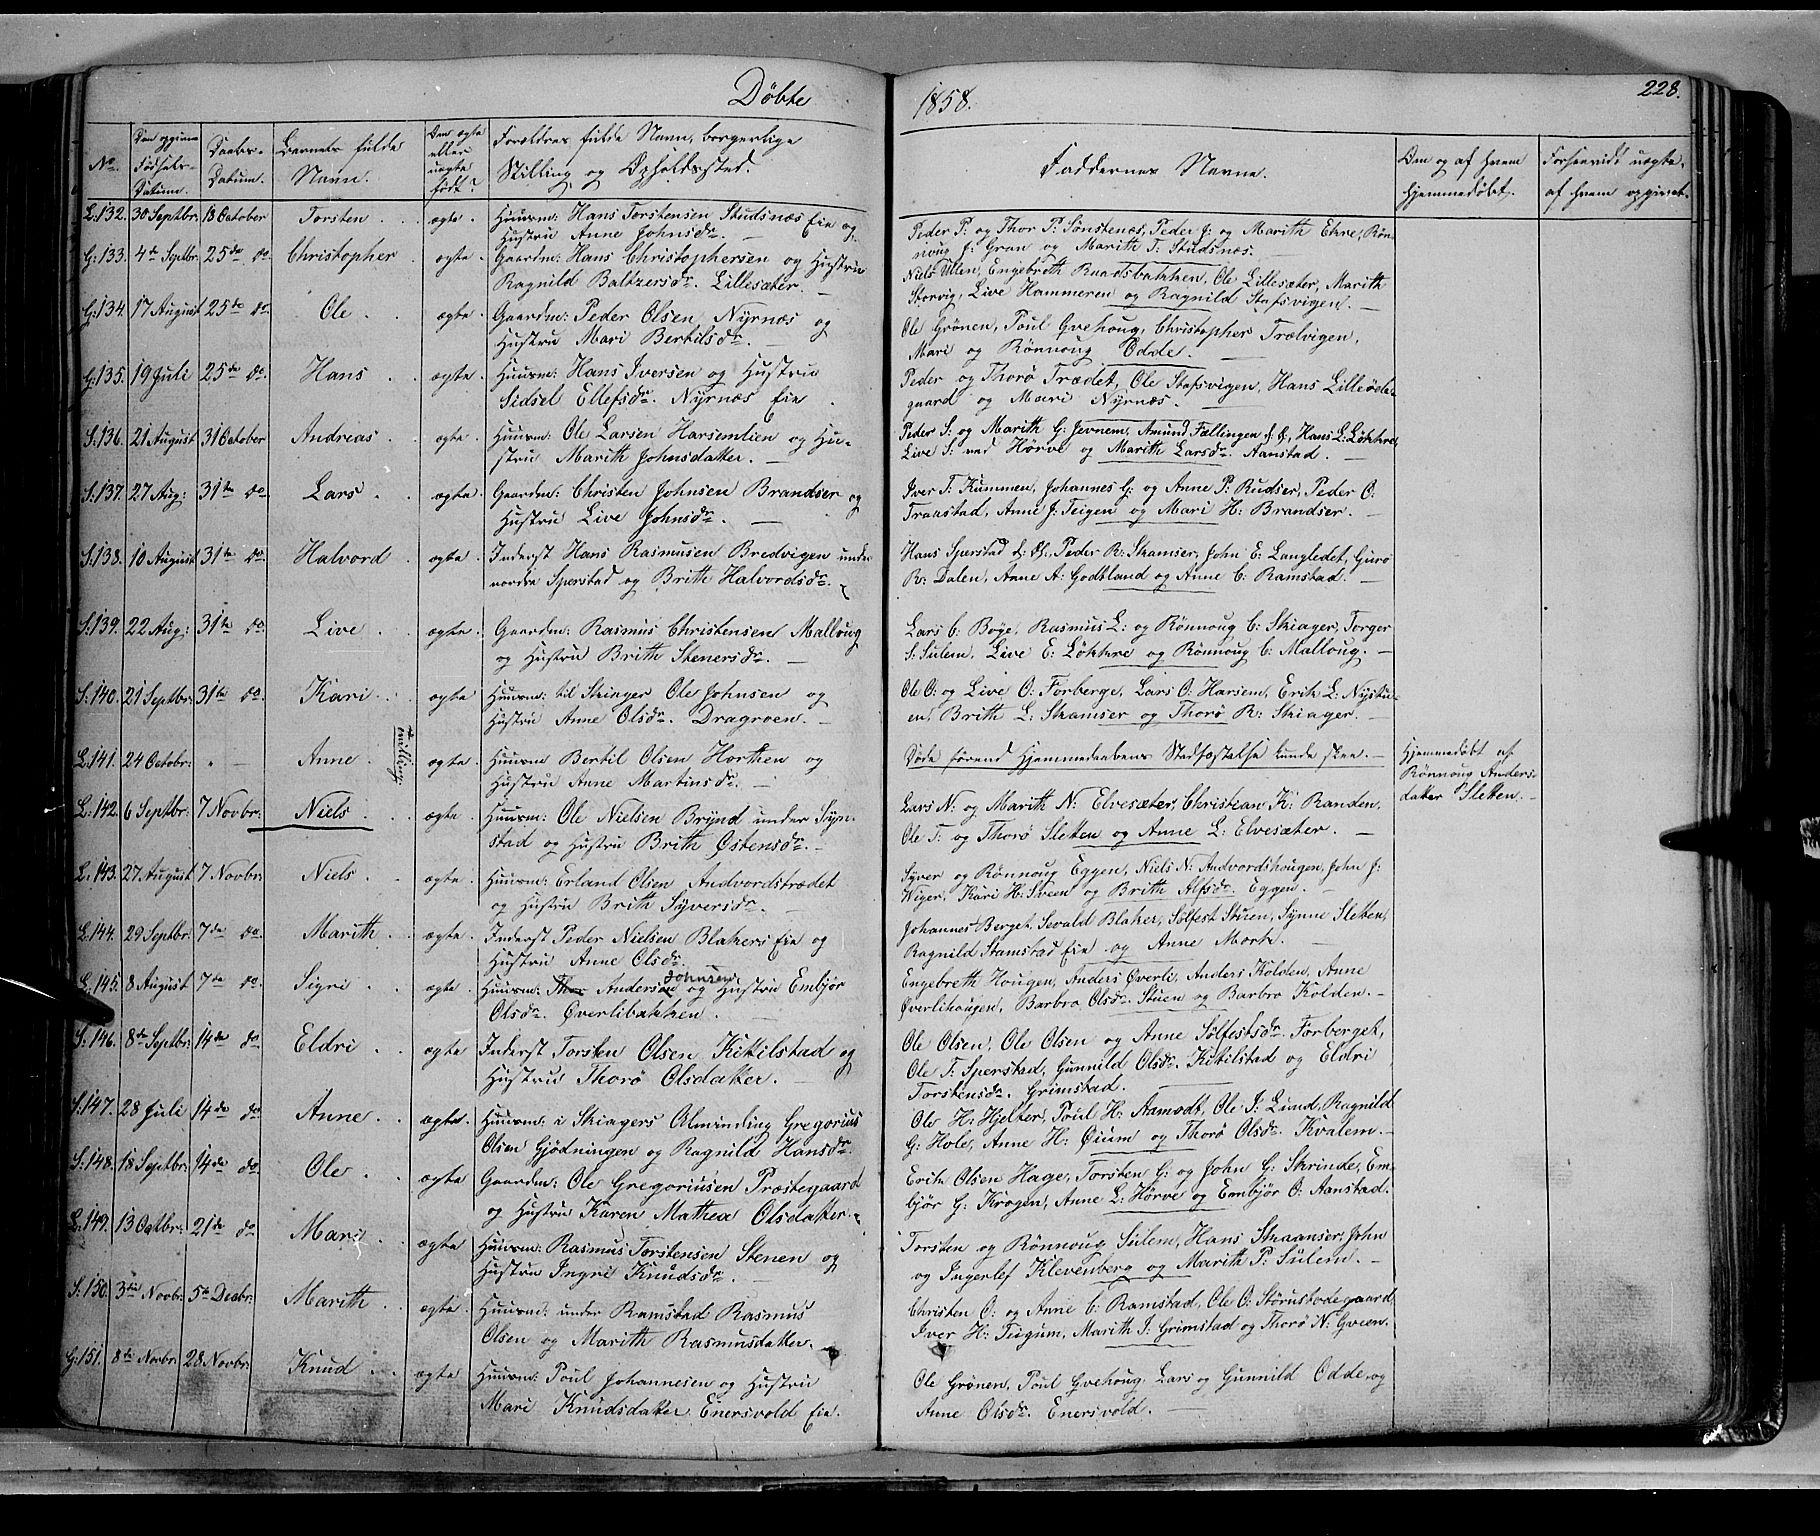 Døbte 1858. 228.
No. Den opgivne Fødsels-Datum. Daabs-Datum. Barnets fulde Navn. Om ægte eller uægte født? Forældres fulde Navn, borgerlige Stilling og Opholdssted. Faddernes Navne. Om og af hvem hjemmedøbt. Forsaavidt uægte, af hvem opgivet.
L: 132. 30 Septbr: 18 October Torsten ægte Huusm: Hans Torstensen Studsnæs Eie og
Hustru Anne Johnsdr. —
Peder P: og Thor P: Sønstenæs, Peder J: og Marith Ekre, Røn-
noug J: Gran og Marith T: Studsnæs.
G: 133. 4de Septbr: 25de do. Christopher ægte Gaardm: Hans Christophersen og Hustru
Ragnild Baltzersdr. Lillesæter. —
Niels Ulen, Engebreth Ruudsbakken, Ole Lillesæter, Marith
Storvig, Live Hammeren og Ragnild Stafsvigen. —
G: 134. 17 August 25de do. Ole ægte Gaardm: Peder Olsen Nyrnæs og
Hustru Mari Bertilsdr. —
Ole Grönen, Poul Gvehoug, Christopher Trælvigen,
Mari og Rönnoug Odde. —
G: 135. 19 Juli 25de do. Hans ægte Huusm: Hans Iversen og Hustru
Sidsel Ellefsdr. Nyrnæs Eie
Peder og Thorö Trædet, Ole Stafsvigen, Hans Lilleöde-
gaard og Mari Nyrnæs. —
S: 136. 21 August 31 October Andreas ægte Huusm: Ole Larsen Harsemlien og Hu-
stru Marith Johnsdatter. —
Peder S: og Marith G: Jevnem, Amund Fællingen s. G., Hans L: Løkkre,
Live S: ved Hörve og Marith Larsdr. Aanstad. —
S: 137. 27 Aug: 31te do. Lars ægte Gaardm: Christen Johnsen Brandser og
Hustru Live Johnsdr. —
Iver T: Kummen, Johannes G: og Anne P: Rudser, Peder O:
Traastad, Anne J: Teigen og Mari H: Brandser. —
S: 138. 10 August 31te do. Halvord ægte Inderst Hans Rasmusen Bredvigen under
nordre Sperstad og Brith Halvordsdr.
Hans Sperstad s. G. Peder R: Skamser, John E: Langledet, Guro
R: Dalen, Anne A: Godtland og Anne C: Ramstad. —
S: 139. 22 Aug: 31te do. Live ægte Gaardm: Rasmus Christensen Malloug
og Hustru Brith Stenersdr. —
Lars C: Böye, Rasmus L: og Rönnoug C: Skiager, Torger
S: Sulem, Live E: Løkkre og Rönnoug C: Malloug. —
S: 140. 21 Septbr: 31te do. Kari ægte Huusm: til Skiager Ole Johnsen og
Hustru Anne Olsdr. Dragroen. —
Ole O: og Live O: Forberge, Lars O: Harsem, Erik L: Nystu-
en, Brith L: Skamser og Thorö R: Skiager. —
L: 141. 24 Octobr: " — Anne tvilling ægte Huusm Bertil Olsen Horthen og
Hustru Anne Martinsdr. —
Døde førend Hjemmedaabens Stadfæstelse kunde skee. —
Hjemmedøbt af
Rönnoug Anders-
datter Sletten. —
L: 142. 6 Septbr: 7 Novbr: Niels ægte Huusm: Ole Nielsen Brynd under Syn-
stad og Hustru Brith Østensdr. —
Lars N: og Marith N: Elvesæter, Christian K: Randen,
Ole T: og Thorö Sletten og Anne L: Elvesæter. —
L: 143. 27 August 7 Novbr: Niels ægte Huusm: Erland Olsen Andvordstrædet
og Hustru Brith Syversdr. —
Syver og Rönnoug Eggen, Niels N: Andvordshougen, John J:
Wiger, Kari H: Sveen og Brith Alfsdr. Eggen. —
L: 144. 29 Septbr: 7de do. Marith ægte Inderst Peder Nielsen Blakers Eie og
Hustru Anne Olsdr. —
Johannes Berget, Sevald Blaker, Sölfest Stuen, Synne Sletten,
Ragnild Stamstad Eie og Anne Mork. —
L: 145. 8 August 7de do. Sigri ægte Huusm: Thor Andersen Johnsen og Hustru Embjør
Olsdr. Øverlibakken. —
Engebreth Hougen, Anders Øverli, Anders Kolden, Anne
Øverlihougen, Barbro Olsdr. Stuen og Barbro Kolden. —
S: 146. 8de Septbr: 14de do. Eldri ægte Inderst Torsten Olsen Kikilstad og
Hustru Thorö Olsdatter. —
Ole Olsen, Ole Olsen og Anne Sølfestsdr. Forberget,
Ole T: Sperstad, Gunnild Olsdr. Kikilstad og Eldri
Torstensdr. Grimstad. —
S: 147. 28 Juli 14de do. Anne ægte Huusm: i Skiagers Alminding Gregorius
Olsen Gjödningen og Ragnild Hansdr.
Ole H: Hjelter, Poul H: Aamodt, Ole J: Lund, Ragnild
G: Hole, Anne H: Øium og Thorö Olsdr. Kvalem. —
S: 148. 18 Septbr: 14de do. Ole ægte Gaardm: Ole Gregoriusen Præstegaard
og Hustru Karen Mathea Olsdatter. —
Erik Olsen Hage, Torsten G: og John G: Skrinde, Em-
bjør G: Krogen, Anne L: Hörve og Embjør O: Aanstad.
L: 149. 13 Octbr: 21de do Mari ægte Huusm: Rasmus Torstensen Stenen og
Hustru Ingri Knudsdr. —
Torsten og Rönnoug Sulem, Hans Skaanser, John
og Ingerlef Klevenberg og Marith P: Sulem. —
S: 150. 3die Novbr: 5te Decbr: Marith ægte Huusm: under Ramstad Rasmus
Olsen og Marith Rasmusdatter. —
Christen O: og Anne C: Ramstad, Ole O: Störustodegaard,
Iver H: Teigum, Marith I: Grimstad og Thorö N: Gveen.
G: 151. 8de Novbr: 28 Novbr: Knud ægte Huusm: Poul Johannesen og Hustru
Mari Knudsdatter Enersvold Eie.
Ole Grönen, Poul Gvehoug, Lars og Gunnild Odde, og
Anne Olsdr. Enersvold. —